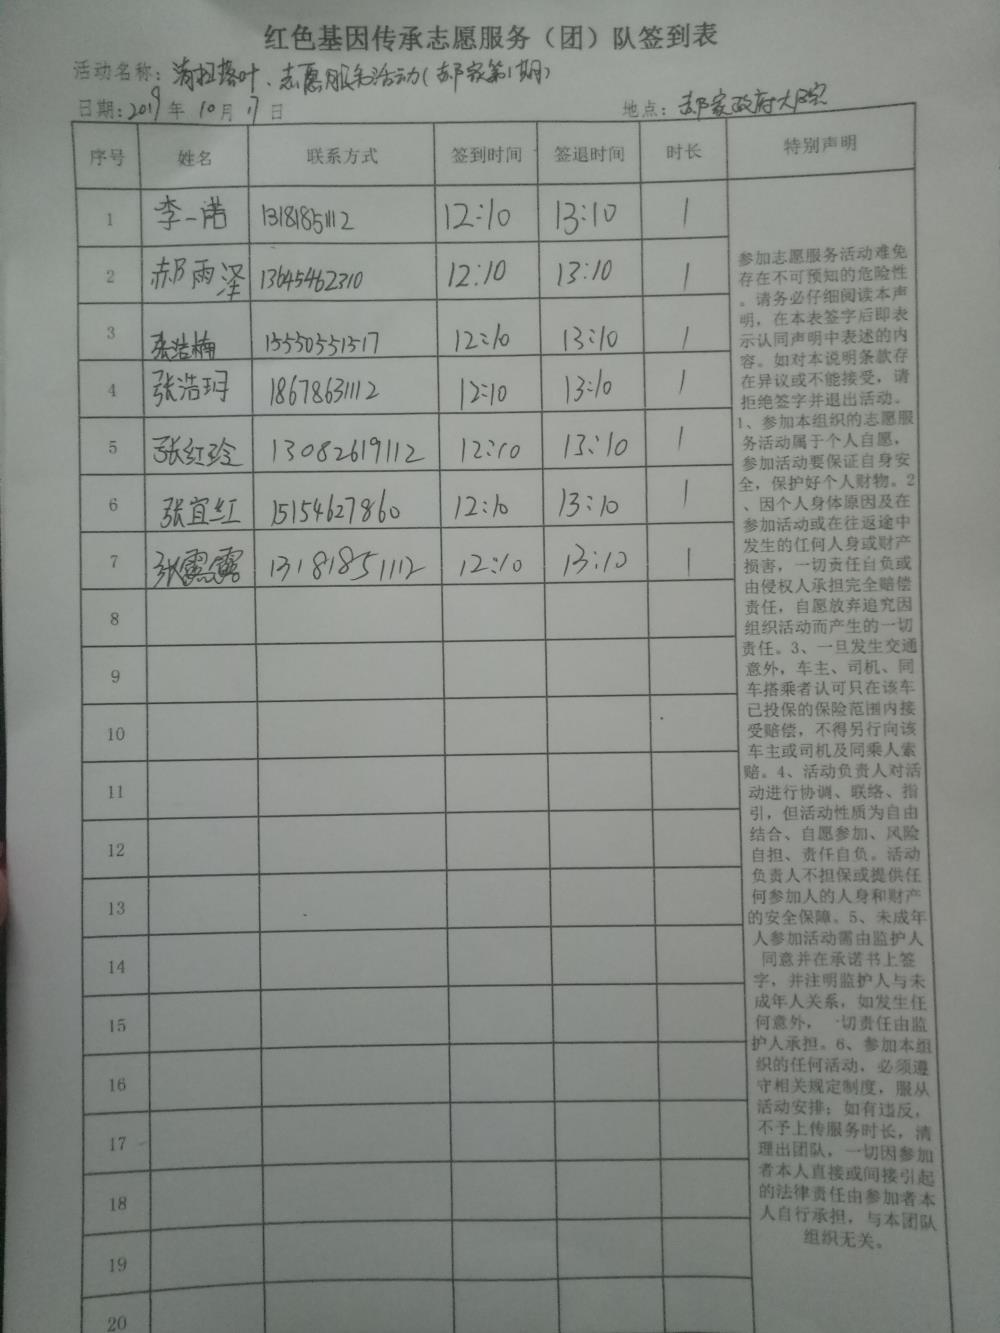 红色基因传承志愿服务（团）队签到表
活动名称：清扫落叶、志愿服务活动（郝家第1期）
日期：2019年 10月 17日 地点：郝家政府大院
序号 姓名 联系方式 签到时间 签退时间 时长 特别声明
1 李一诺 13181851112 12:10 13:10 1
2 郝雨泽 13645462310 12:10 13:10 1
3 张浩楠 15550551517 12:10 13:10 1
4 张浩玥 18678631112 12:10 13:10 1
5 张红玲 13082619112 12:10 13:10 1
6 张宜红 15154627860 12:10 13:10 1
7 张露露 13181851112 12:10 13:10 1
8
9
10
11
12
13
14
15
16
17
18
19
20
参加志愿服务活动难免
存在不可预知的危险性
。请务必仔细阅读本声
明，在本表签字后即表
示认同声明中表述的内
容。如对本说明条款存
在异议或不能接受，请
拒绝签字并退出活动。
1、参加本组织的志愿服
务活动属于个人自愿，
参加活动要保证自身安
全，保护好个人财物。2
、因个人身体原因及在
参加活动或在往返途中
发生的任何人身或财产
损害，一切责任自负或
由侵权人承担完全赔偿
责任，自愿放弃追究因
组织活动而产生的一切
责任。3、一旦发生交通
意外，车主、司机、同
车搭乘者认可只在该车
已投保的保险范围内接
受赔偿，不得另行向该
车主或司机及同乘人索
赔。4、活动负责人对活
动进行协调、联络、指
引，但活动性质为自由
结合、自愿参加、风险
自担、责任自负。活动
负责人不担保或提供任
何参加人的人身和财产
的安全保障。5、未成年
人参加活动需由监护人
同意并在承诺书上签
字，并注明监护人与未
成年人关系，如发生任
何意外，一切责任由监
护人承担。6、参加本组
织的任何活动，必须遵
守相关规定制度，服从
活动安排；如有违反，
不予上传服务时长，清
理出团队，一切因参加
者本人直接或间接引起
的法律责任由参加者本
人自行承担，与本团队
组织无关。